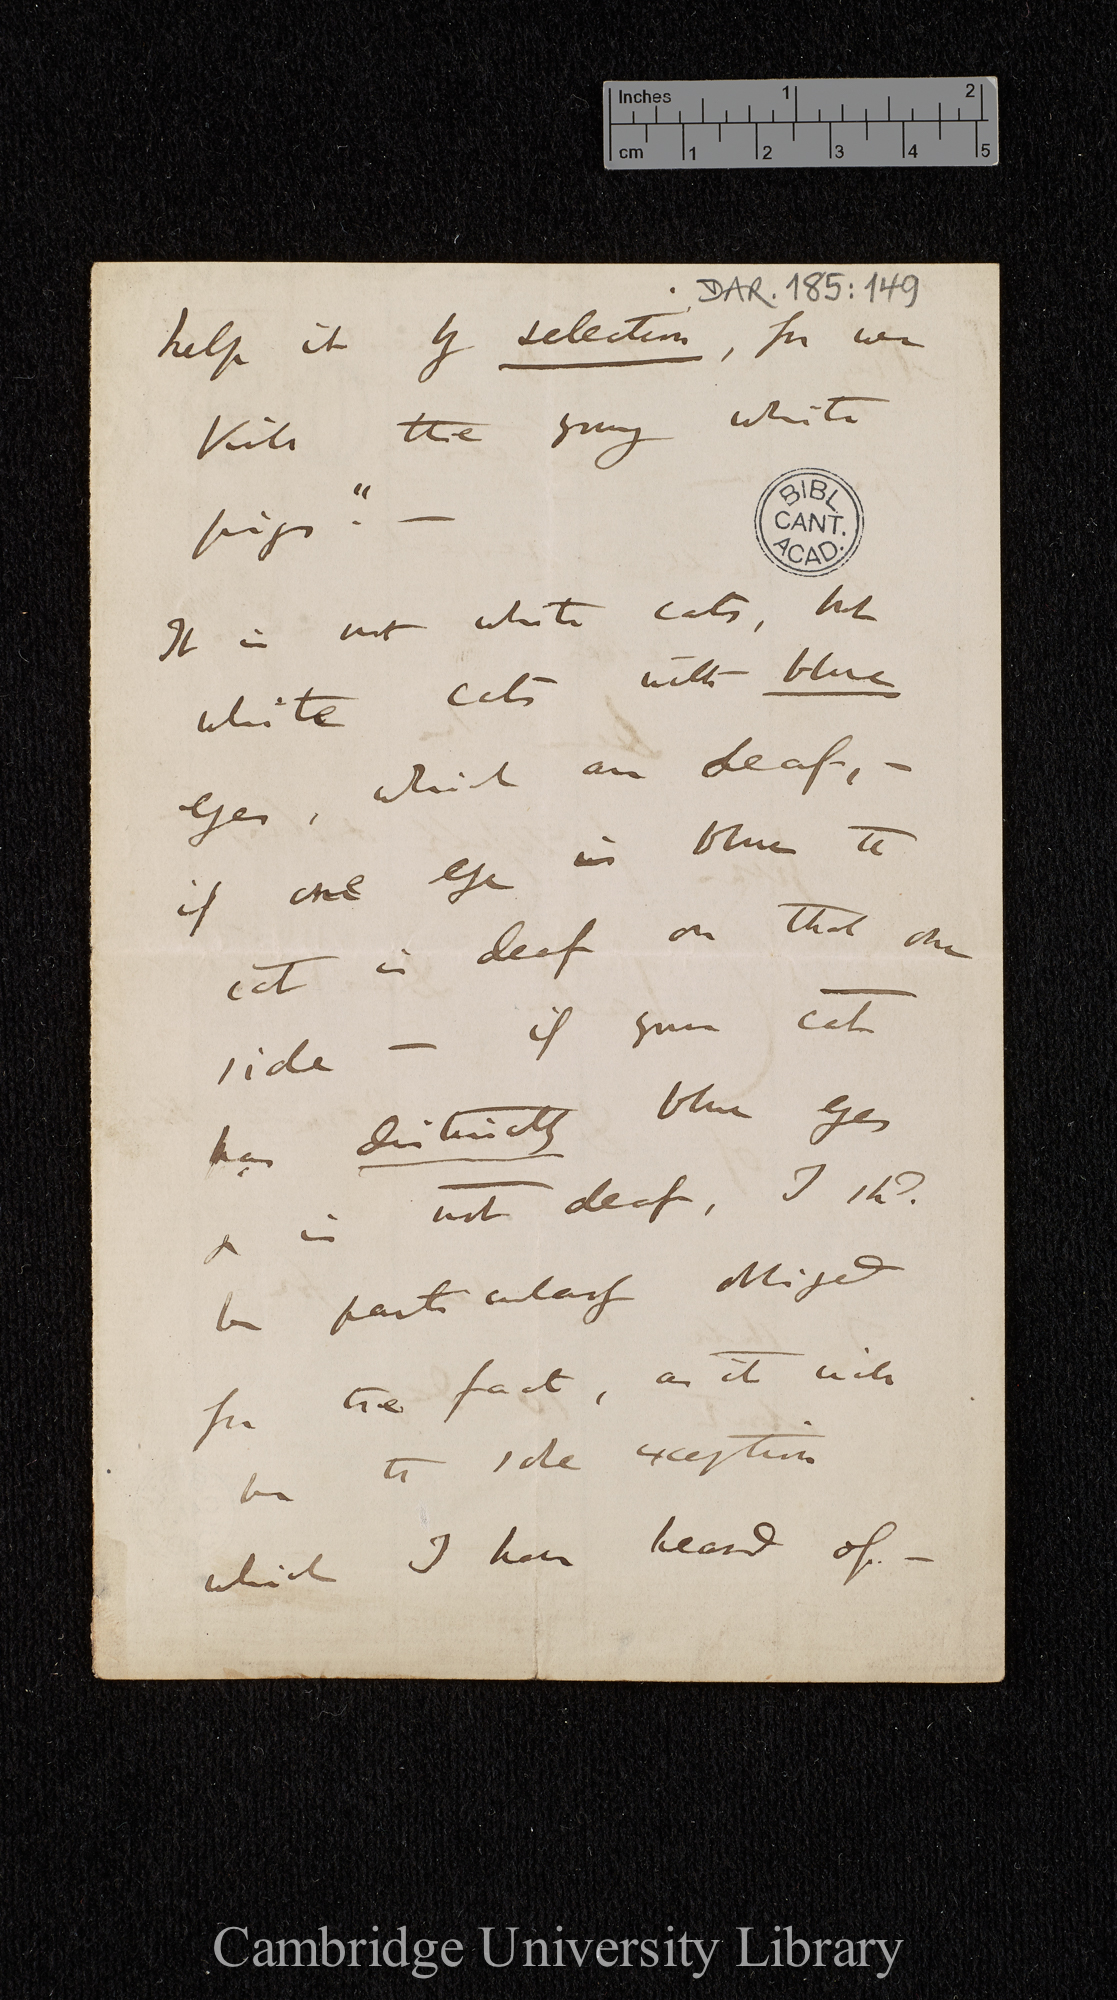 Inches 1 2
cm 1 2 3 4 5
DAR. 185: 149
help it by selection, for we
kill the young white
pigs". —
BIBL.
CANT.
ACAD.
It is not white cats, but
white cats with blue
eyes, which are deaf, —
if one eye is blue the
cat is deaf on that one
side — if your cat
has distinctly blue eyes
& is not deaf, I shd.
be particularly obliged
for the fact, as it will
be the sole exception
which I have heard of. —
Cambridge University Library